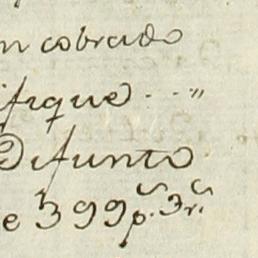 n cobrado
ifique . . . "
Difunto
e 399 p.s 3 r.s